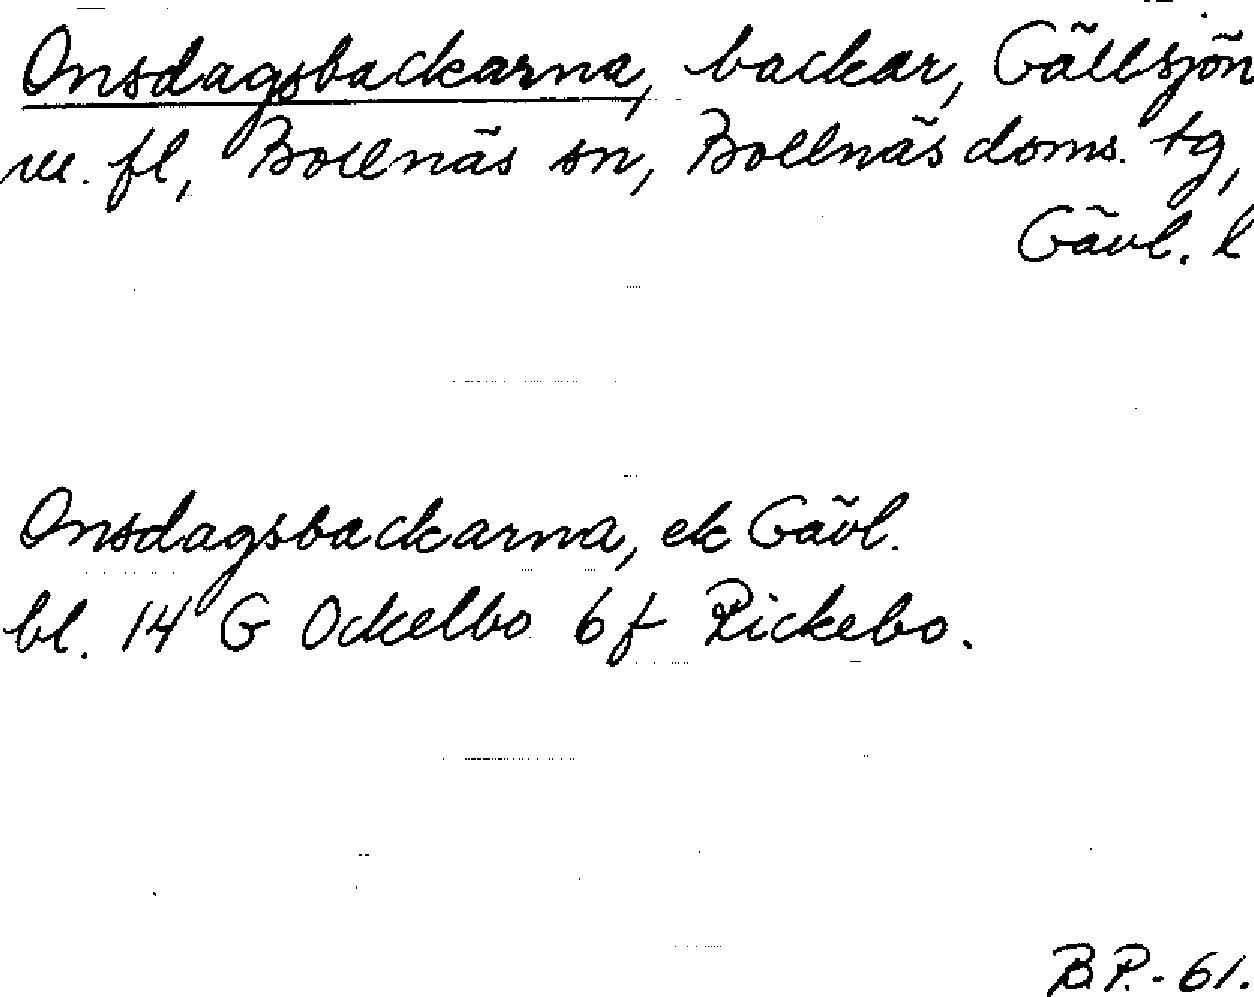 Onsdagsbackarna, backar, Gällsjön
m. fl, Bollnäs sn, Bollnäs doms. tg,
Gävl. l
Onsdagsbackarna, ek Gävl.
bl. 14 G Ockelbo 6f Rickebo.
B.P.-61.